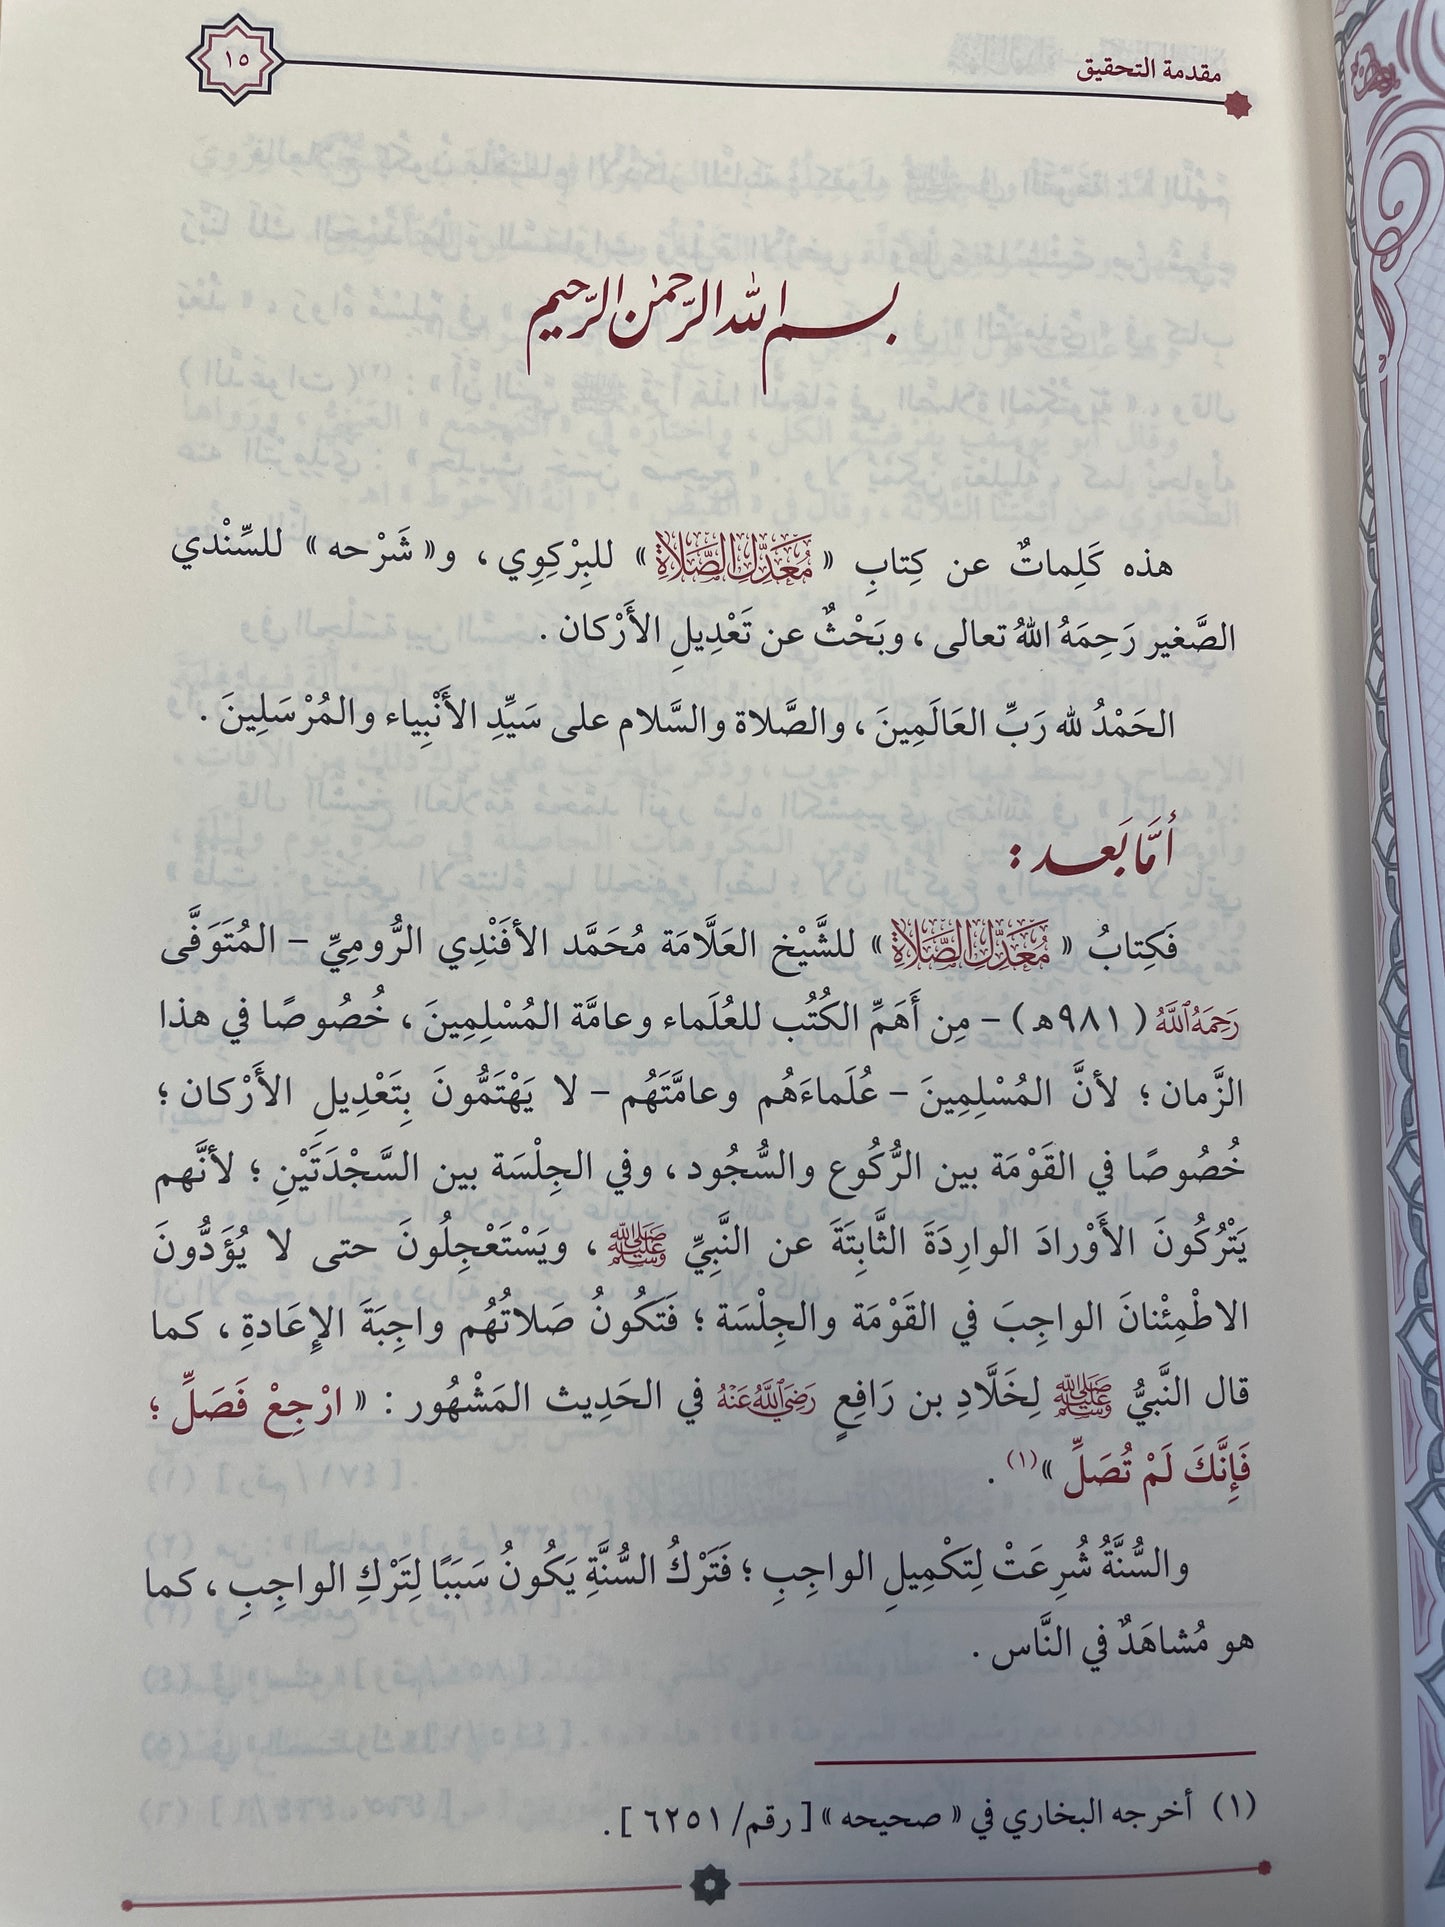 مقدمة التحقيق
١٥
بسم الله الرحمن الرحيم
هذه كَلِماتٌ عن كِتابِ « مُعَدِّل الصَّلاة » للبِرْكِوِي ، و« شَرْحه » للسِّنْدي
الصَّغير رَحِمَهُ اللهُ تعالى ، وبَحْثٌ عن تَعْدِيلِ الأَرْكان .
الحَمْدُ لله رَبِّ العَالَمِينَ ، والصَّلاة والسَّلام على سَيِّدِ الأَنْبِياء والمُرْسَلِينَ .
أمَّا بَعد :
فَكِتابُ « مُعَدِّل الصَّلاة » للشَّيْخ العَلَّامَة مُحَمَّد الأفَنْدِي الرُّومِيِّ – المُتَوَفَّى
رَحِمَهُ ٱللَّهُ ( ٩٨١هـ ) – مِن أَهَمِّ الكُتُب للعُلَماء وعامَّة المُسْلِمِينَ ، خُصُوصًا في هذا
الزَّمان ؛ لأنَّ المُسْلِمِينَ – عُلَماءَهُم وعامَّتَهُم – لا يَهْتَمُّونَ بِتَعْدِيلِ الأَرْكان ؛
خُصُوصًا في القَوْمَة بين الرُّكُوع والسُّجُود ، وفي الجِلْسَة بين السَّجْدَتَيْنِ ؛ لأنَّهم
يَتْرُكُونَ الأَوْرادَ الوارِدَةَ الثَّابِتَةَ عن النَّبِيِّ ﷺ ، ويَسْتَعْجِلُونَ حتى لا يُؤَدُّونَ
الاطْمِئْنانَ الواجِبَ في القَوْمَة والجِلْسَة ؛ فَتَكُونُ صَلاتُهُم واجِبَةَ الإِعَادةِ ، كما
قال النَّبِيُّ ﷺ لِخَلَّادِ بن رَافِعٍ رَضِيَ ٱللَّهُ عَنْهُ في الحَدِيث المَشْهُور : « ارْجِعْ فَصَلِّ ؛
فَإِنَّكَ لَمْ تُصَلِّ »(١) .
والسُّنَّةُ شُرِعَتْ لِتَكْمِيلِ الواجِبِ ؛ فَتَرْكُ السُّنَّةِ يَكُونُ سَبَبًا لِتَرْكِ الواجِبِ ، كما
هو مُشاهَدٌ في النَّاس .
(١) أخرجه البخاري في « صحيحه » [ رقم/ ٦٢٥١ ] .